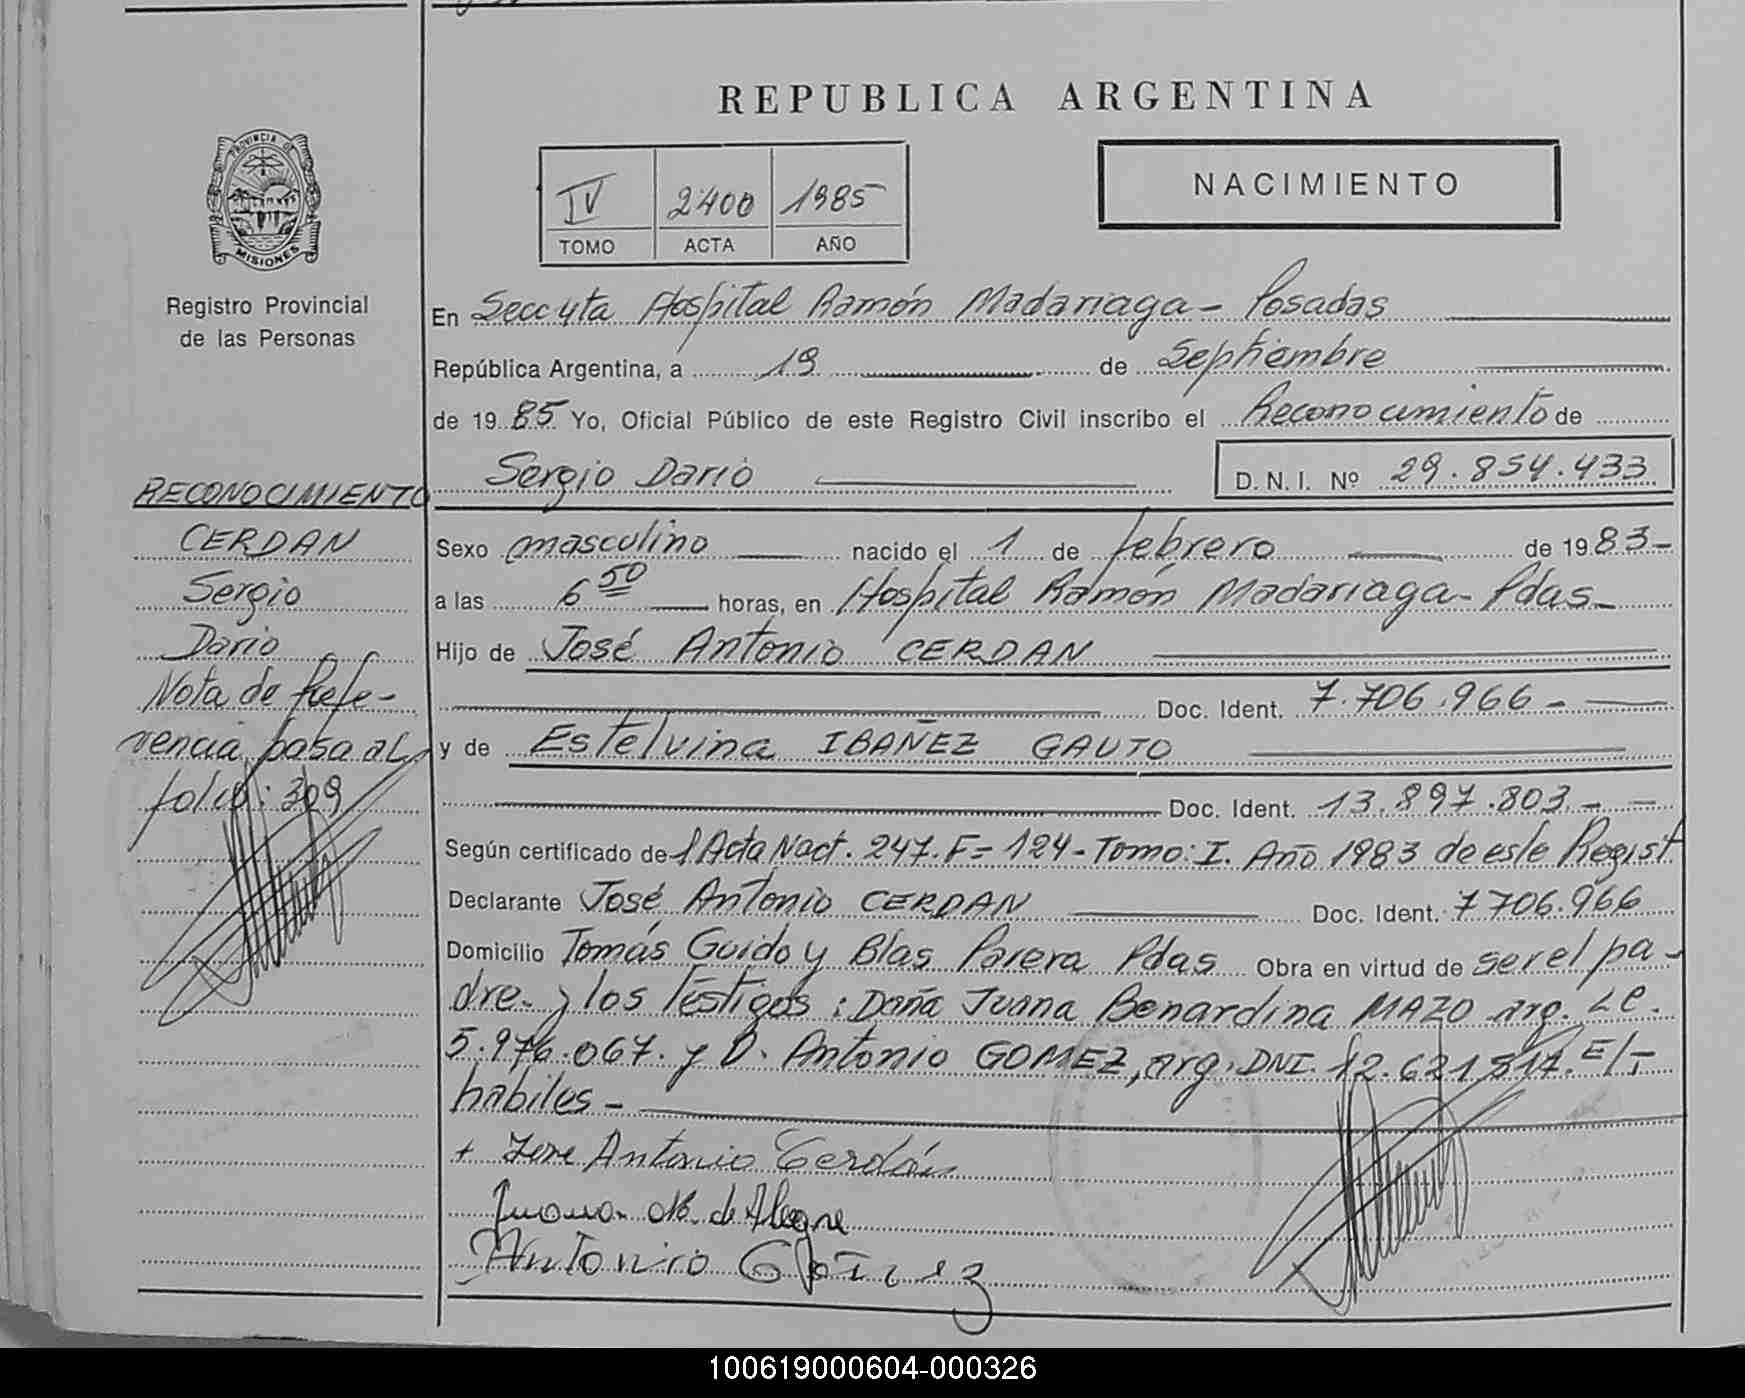 REPUBLICA ARGENTINA
PROVINCIA DE
MISIONES
IV 2400 1985
TOMO ACTA AÑO
NACIMIENTO
Registro Provincial
de las Personas
En Secc 4ta Hospital Ramón Madariaga - Posadas
República Argentina, a 19 de Septiembre
de 19 85 Yo, Oficial Público de este Registro Civil inscribo el Reconocimiento de
Sergio Dario D. N. I. Nº 29.854.433
RECONOCIMIENTO
CERDAN
Sergio
Dario
Nota de Refe-
rencia pasa al
folio: 309
Sexo masculino nacido el 1 de febrero de 19 83-
a las 6 50 horas, en Hospital Ramón Madariaga - Pdas -
Hijo de José Antonio CERDAN
Doc. Ident. 7.706.966 -
y de Estelvina IBAÑEZ GAUTO
Doc. Ident. 13.897.803 - -
Según certificado de l Acta Nact. 247. F= 124 - Tomo: I. Año 1983 de este Regist
Declarante José Antonio CERDAN Doc. Ident. 7706.966
Domicilio Tomás Guido y Blas Parera Pdas Obra en virtud de ser el pa-
dre - y los Testigos: Doña Juana Benardina MAZO arg. LC.
5.976.067. y D. Antonio GOMEZ, arg. DNI. 12.621.517. E/-
habiles -
+ Jose Antonio Cerdán
Juana de Alegre
Antonio Gómez
100619000604-000326